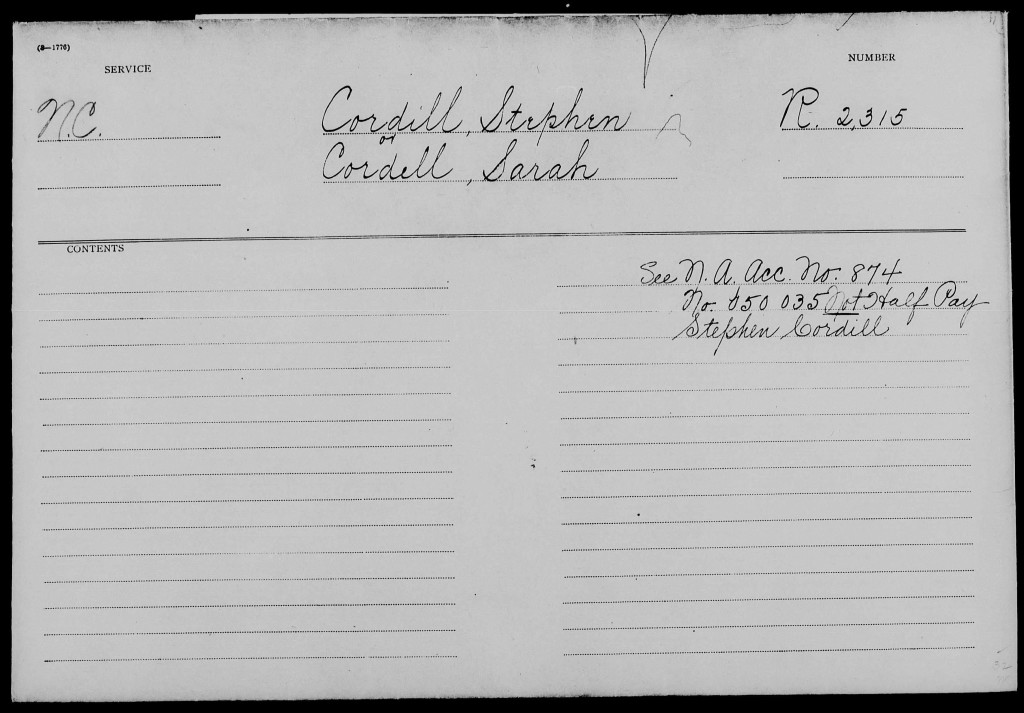 (3—1776)
SERVICE
NUMBER
N.C.
Cordill, Stephen
R. 2,315
or
Cordell, Sarah
CONTENTS
See N. A. Acc. No. 874
No. 050 035 Not Half Pay
Stephen Cordill